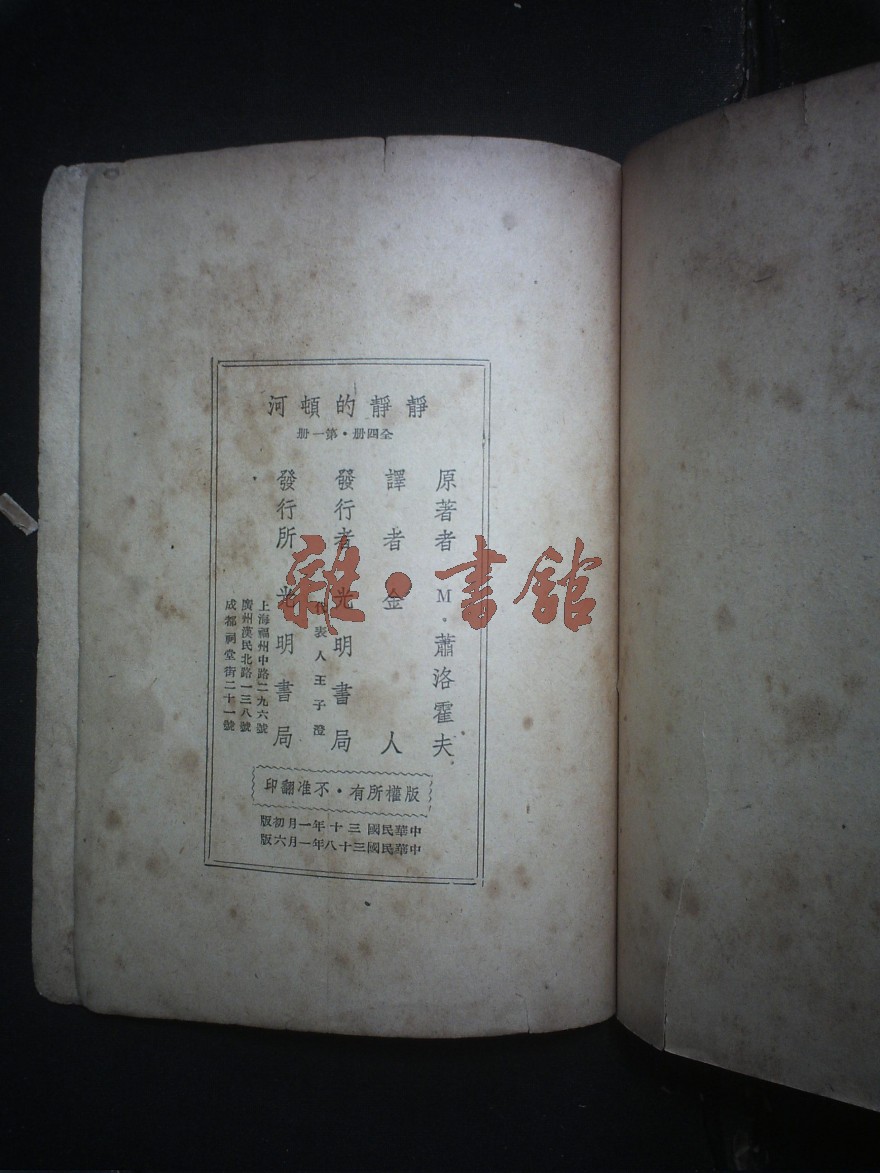 靜靜的頓河
全四册・第一册
原著者 M・蕭洛霍夫
譯者 金人
發行者 光明書局
代表人王子澄
發行所 光明書局
上海福州中路二九六號
廣州漢民北路一三八號
成都祠堂街二十一號
版權所有・不准翻印
中華民國三十年一月初版
中華民國三十八年一月六版
雜・書館